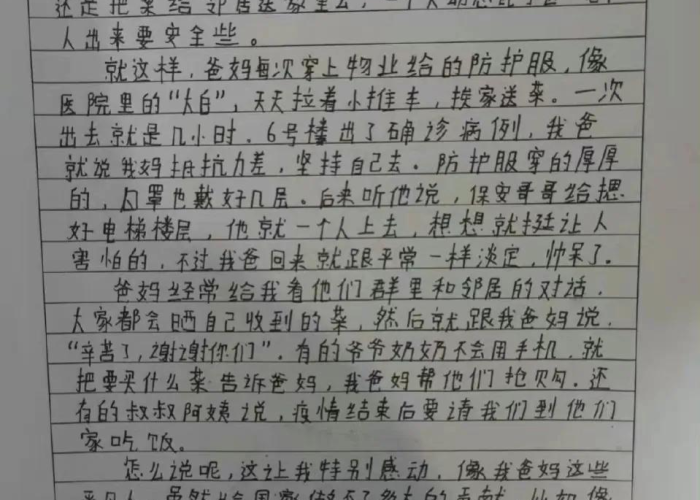 还是把菜给邻居送家里去，一个人
人出来要安全些。
就这样，爸妈每次穿上物业给的防护服，像
医院里的“大白”，天天拉着小推车，挨家送菜。一次
出去就是几小时。6号楼出了确诊病例，我爸
就说我妈抵抗力差，坚持自己去。防护服穿的厚厚
的，口罩也戴好几层。后来听他说，保安哥哥给摁
好电梯楼层，他就一个人上去，想想就挺让人
害怕的，不过我爸回来就跟平常一样淡定，帅呆了。
爸妈经常给我看他们群里和邻居的对话。
大家都会晒自己收到的菜，然后就跟我爸妈说，
“辛苦了，谢谢你们”。有的爷爷奶奶不会用手机，就
把要买什么菜告诉爸妈，我爸妈帮他们抢购。还
有的叔叔阿姨说，疫情结束后要请我们到他们
家吃饭。
怎么说呢，这让我特别感动，像我爸妈这些
平凡人，虽然给国家做不了多大的贡献，